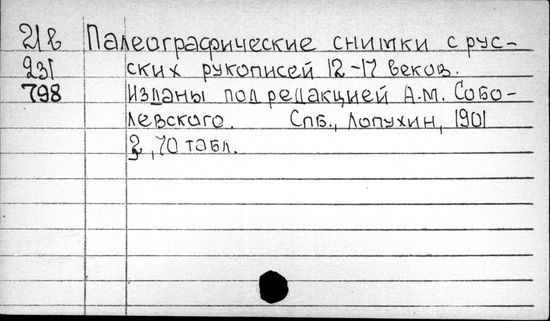 21в Палеографические снимки с рус-
231 ских рукописей 12-17 веков.
798 Изданы под редакцией А.М. Собо-
левского. Спб., Лопухин, 1901
2, 70 табл.